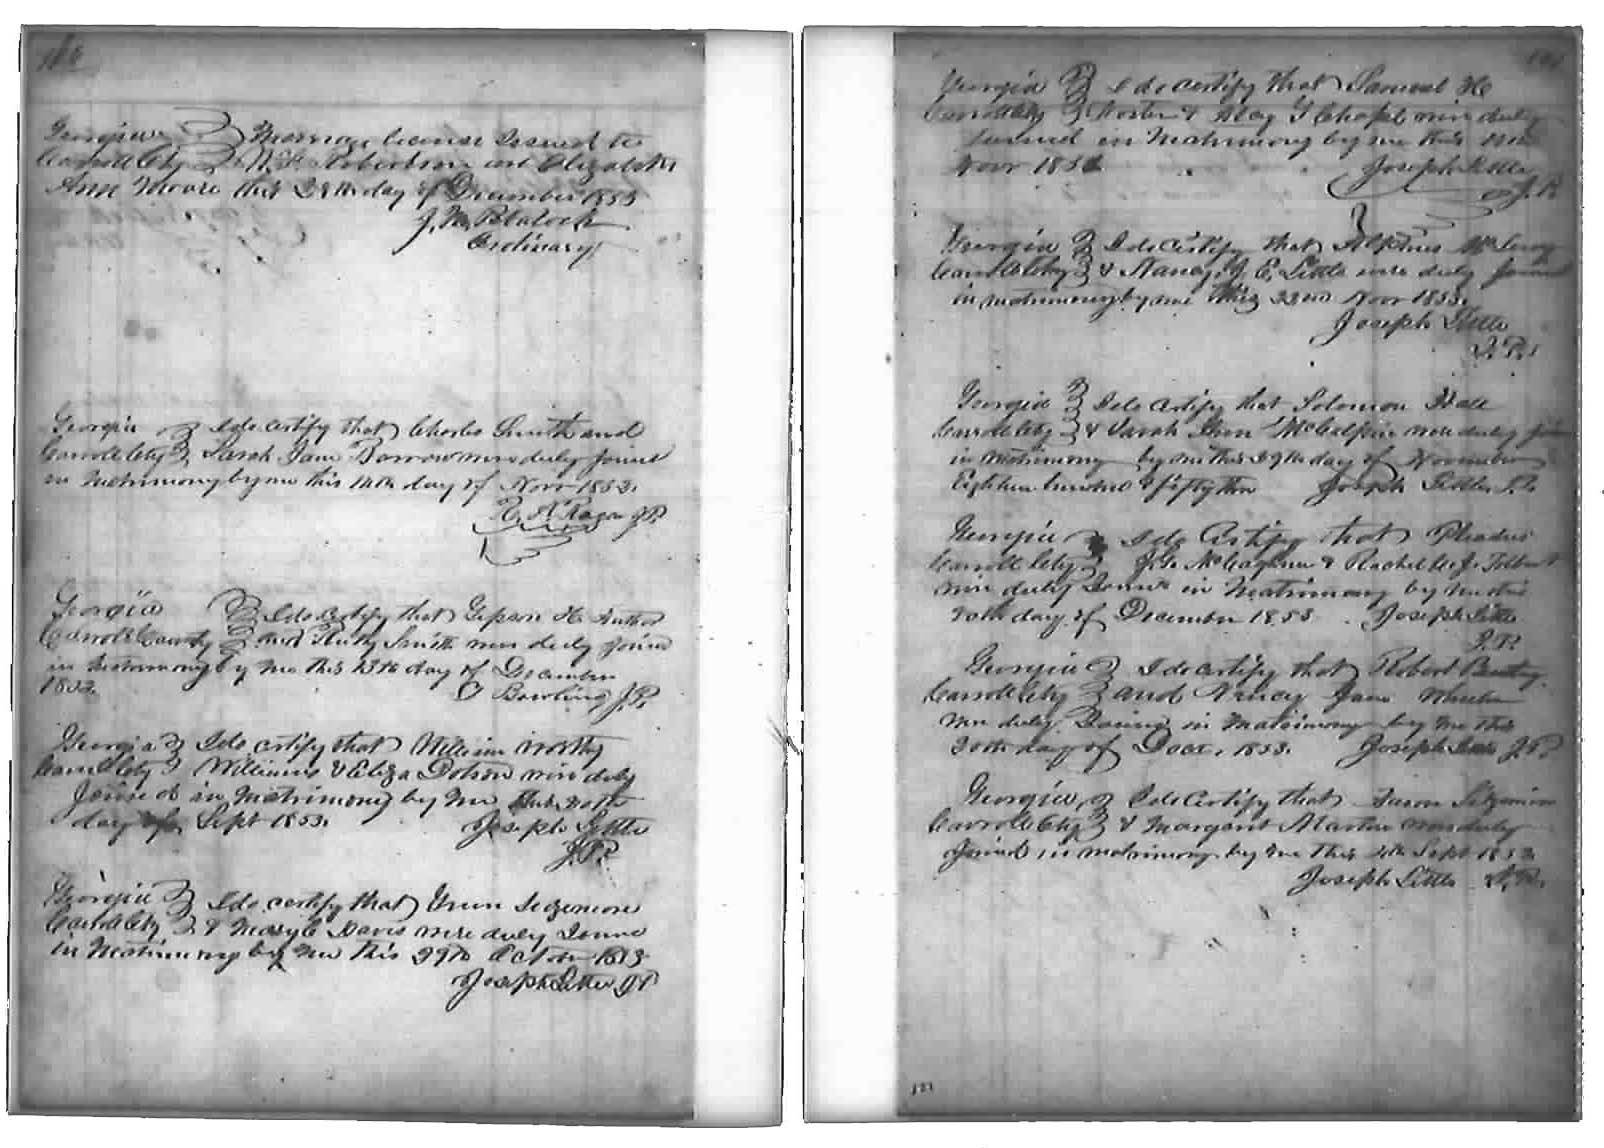 Georgia Marriage license issued to
Carroll Cty N. F. Robertson and Elizabeth
Ann Moore this 28th day of December 1853
J. M. Blalock
Ordinary
Georgia I do certify that Charles Smith and
Carroll Cty Sarah Jane Barrow were duly joined
in Matrimony by me this 14th day of Novr 1853.
R. A. Ragan J.P.
Georgia I do certify that H. Author
Carroll County and Smith were duly joined
in Matrimony by me this 13th day of December
1853. Bowling J.P.
Georgia I do certify that William Worthy
Carroll Cty Williams & Eliza Dotson were duly
Joined in Matrimony by me this
day of Sept 1853. Joseph Little
J.P.
Georgia I do certify that Green Sizemore
Carroll Cty & Mary C Davis were duly Joined
in Matrimony by me this 29th October 1853
Joseph Little JP
Georgia I do certify that Samuel H
Carroll Cty & Mary were duly
joined in Matrimony by me this
Novr 1853 Joseph Little
J.P.
Georgia I do certify that Alpheus McLeroy
Carroll Cty & Nancy J. E. Little were duly joined
in matrimony by me this 22nd Novr 1853.
Joseph Little
J.P.
Georgia I do certify that Solomon Hall
Carroll Cty & Sarah Ann McCalpin were duly
in matrimony by me this 29th day of November
Eighteen hundred & fifty three Joseph Little J.P.
Georgia I do Certify that
Carroll Cty J. G. & Rachel J. Tolbert
were duly Joined in Matrimony by me this
20th day of December 1853. Joseph Little
J.P.
Georgia I do certify that Robert
Carroll Cty and Nancy Jane
were duly Joined in Matrimony by me this
day of 1853. Joseph Little J.P.
Georgia I do certify that
Carroll Cty & Margaret Martin were duly
Joined in matrimony by me this Sept 1853
Joseph Little J.P.